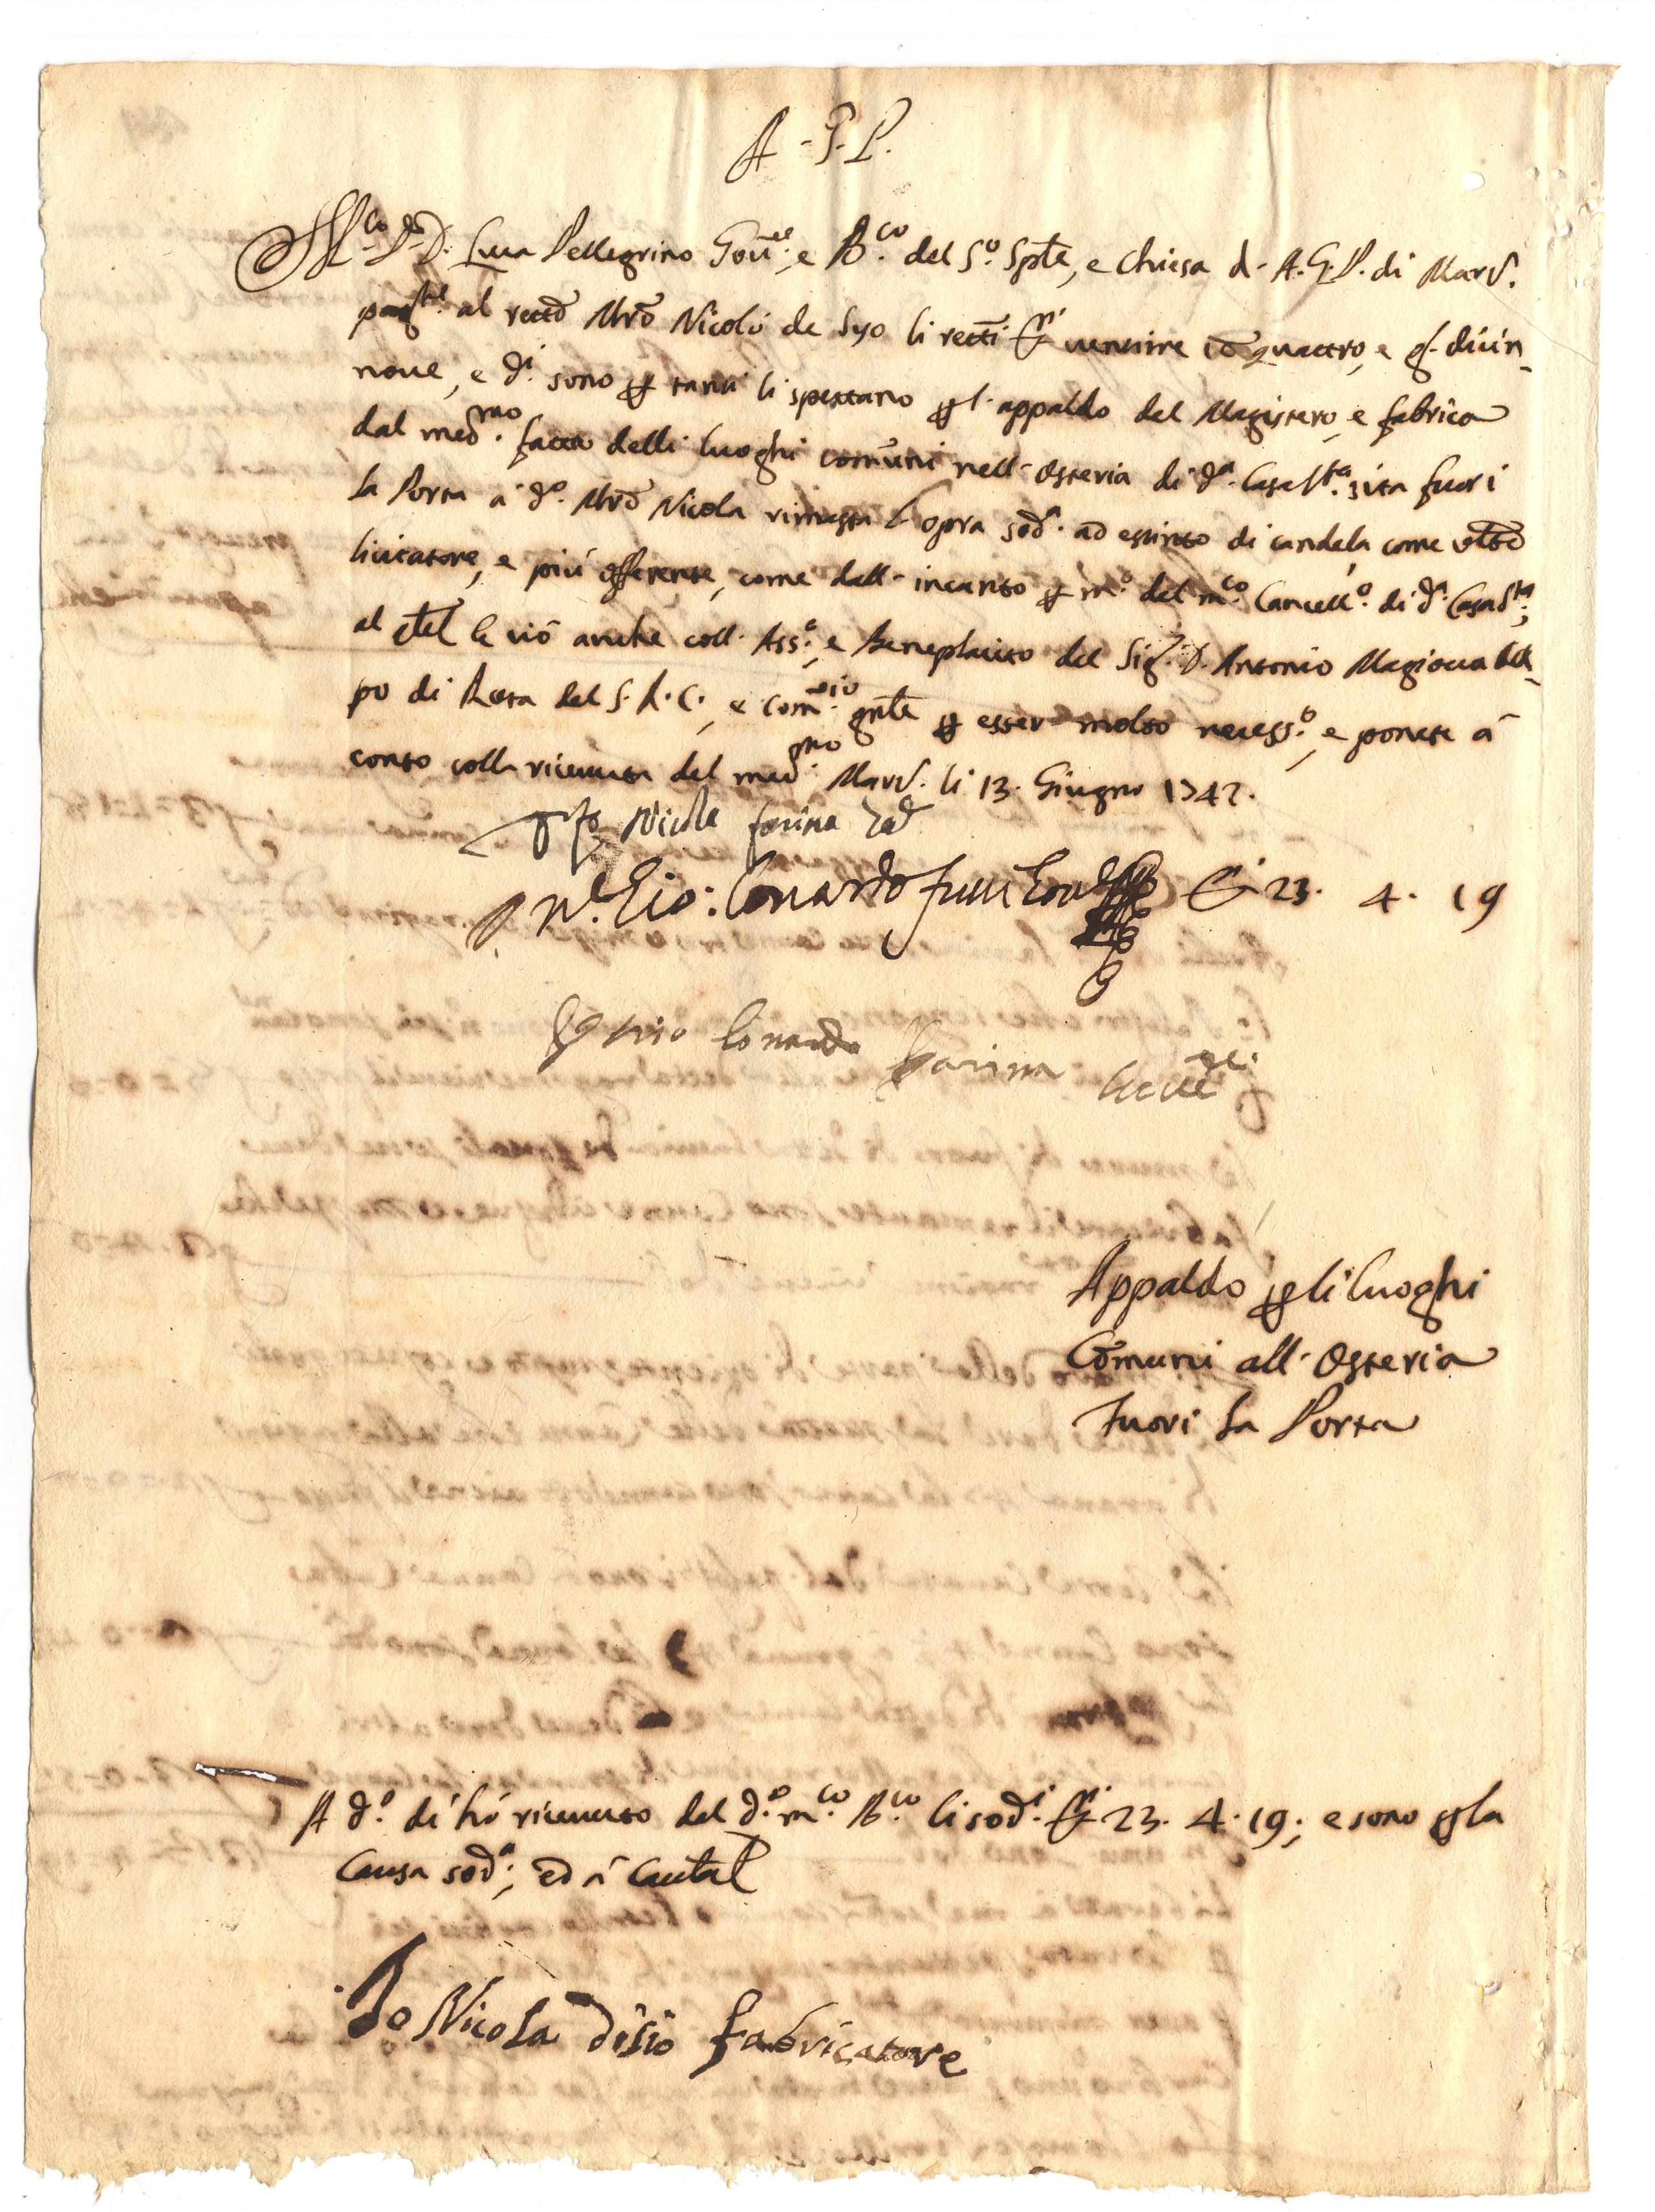 A. G. P.
M.co S.r D. Luca Pellegrino Gov.re, e B.co del S.o Sple, e Chiesa d. A. G. P. di Mard.
al retto Mro Nicolò de Syo li retti D.ti ventitre tò quattro, e g. dicin-
nove, e d.i sono p tanti li spettano p l'appaldo del Magistero, e fabrica
dal med.mo fatta delli luoghi comuni nell'Osteria di d.a Casa S.ta sita fuori
la Porta à d.o Mro Nicola rimasta l'opra sod.a ad estinto di candela come
licitatore, e più offerente, come dall'incanto p m.o del m.co Cancell.o di d.a Casa S.ta;
al e ciò anche coll'Ass.o, e Beneplacito del Sig. D. Antonio Magiocca
po di Rota del S. R. C., e Com.rio gnle p esser molto necess.o, e ponete à
conto colla ricevuta del med.mo Mard. li 13. Giugno 1742.
Nicola farina
Gio: Lonardo D.ti 23. 4. 19
Lonardo Farina
Appaldo p li luoghi
Comuni all'Osteria
Fuori la Porta
A d.o dì hò ricevuto dal d.o m.co B.co li sod.i D.ti 23. 4. 19; e sono p la
causa sod.a; ed à cautal
Io Nicola disio fabricatore